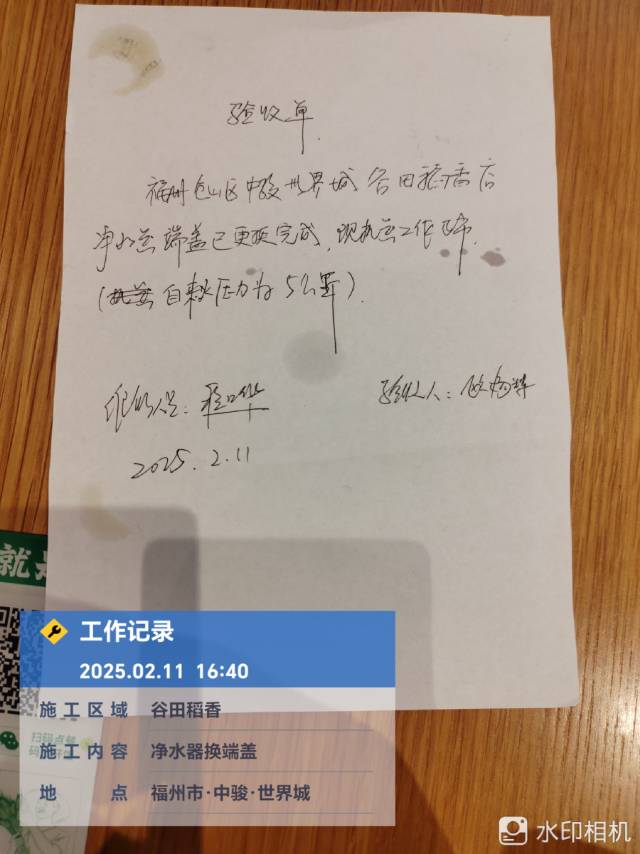 验收单
福州仓山区中骏世界城谷田稻香店
净水器端盖已更换完成,现机器工作正常.
(自来水压力为5公斤).
维修人员:
验收人:
2025.2.11
就是
扫码点餐
工作记录
2025.02.11 16:40
施工区域 谷田稻香
施工内容 净水器换端盖
地点 福州市·中骏·世界城
水印相机